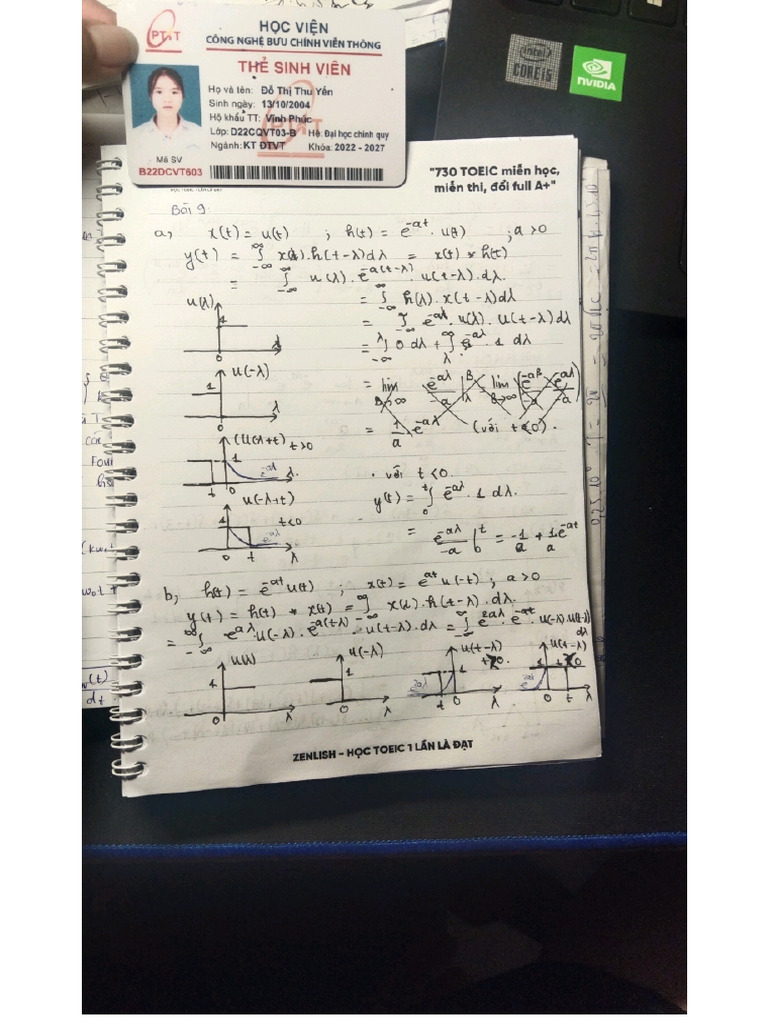 PTIT
HỌC VIỆN
CÔNG NGHỆ BƯU CHÍNH VIỄN THÔNG
THẺ SINH VIÊN
Họ và tên: Đỗ Thị Thu Yến
Sinh ngày: 13/10/2004
Hộ khẩu TT: Vĩnh Phúc
Lớp: D22CQVT03-B Hệ: Đại học chính quy
Ngành: KT ĐTVT Khóa: 2022 - 2027
Mã SV
B22DCVT603
intel
CORE i5
NVIDIA
"730 TOEIC miễn học,
miễn thi, đổi full A+"
Bài 9
a, x(t) = u(t) ; h(t) = e^-at . u(t) ; a > 0
y(t) = ∫_-∞^∞ x(λ).h(t-λ)dλ = x(t) * h(t)
= ∫_-∞^∞ u(λ).e^-a(t-λ).u(t-λ).dλ.
= ∫_-∞^∞ h(λ).x(t-λ)dλ
= ∫_-∞^∞ e^-aλ.u(λ).u(t-λ)dλ
u(λ)
1
0
λ
u(-λ)
1
0
λ
= 1/a e^-aλ (với t<0).
u(-λ+t) t>0
1
e^-aλ
t 0
λ
u(-λ+t)
t<0
1
e^-aλ
0 t
λ
. với t<0.
y(t) = ∫_0^t e^-aλ . 1 dλ.
= e^-aλ/-a |_0^t = -1/a + 1/a e^-at
b, h(t) = e^-at u(t) ; x(t) = e^at u(-t) ; a > 0
y(t) = h(t) * x(t) = ∫_-∞^∞ x(λ).h(t-λ).dλ.
= ∫_-∞^∞ e^aλ.u(-λ).e^-a(t-λ).u(t-λ).dλ = ∫_-∞^∞ e^2aλ.e^-at.u(-λ).u(t-λ)dλ
u(λ)
1
0
λ
u(-λ)
1
0
λ
u(t-λ)
1
t 0
λ
u(t-λ)
1
0 t
λ
ZENLISH – HỌC TOEIC 1 LẦN LÀ ĐẠT